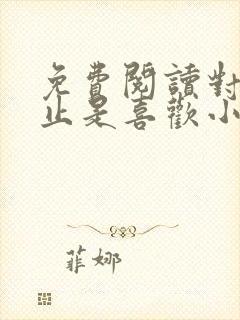 免費閱讀對
止是喜歡小
菲娜